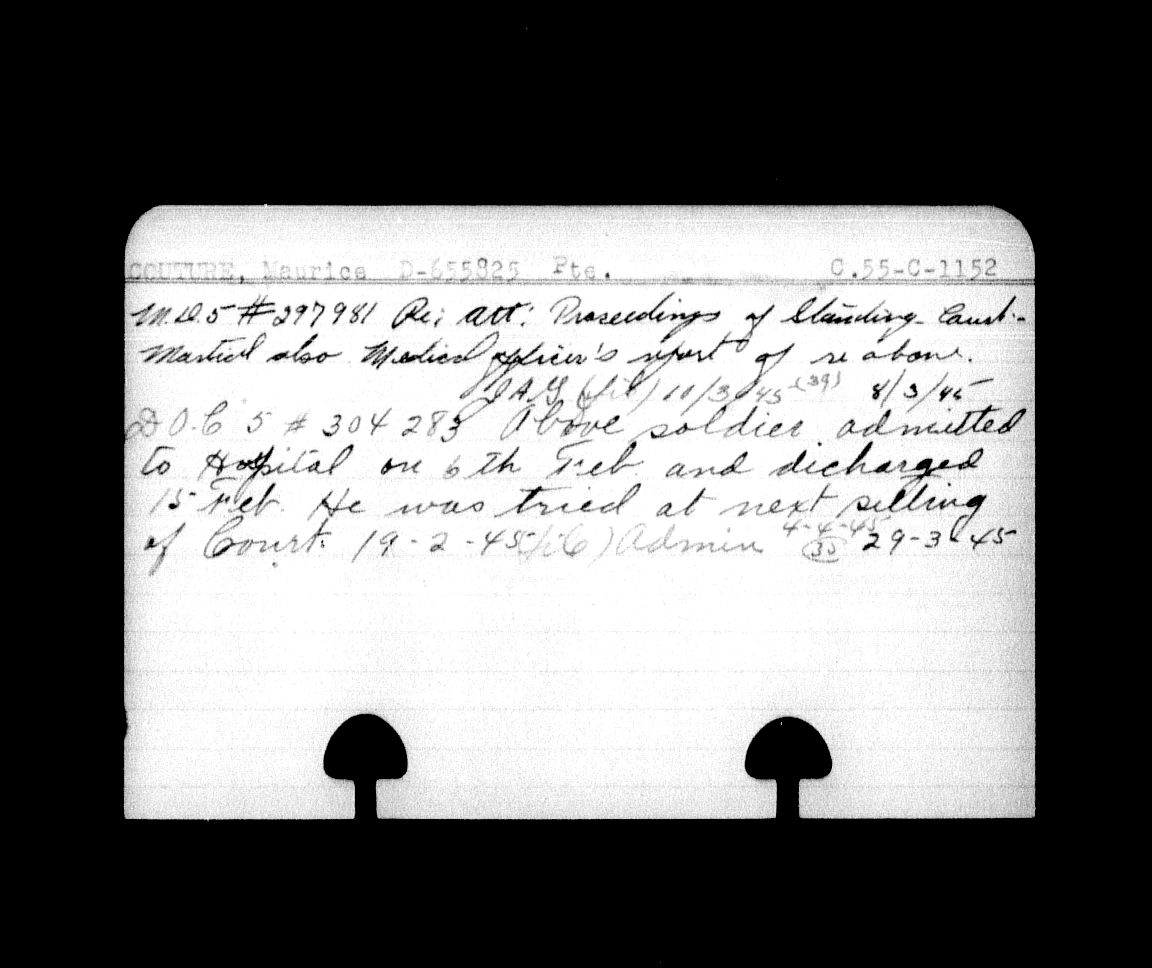 COUTURE, Maurice D-655825 Pte. C.55-C-1152
M.D.5 #297981 Re: Att: Proceedings of Standing Court-
Martial also Medical Officer's report of re above.
JAG 10/3/45 (39) 8/3/45
D.O.C 5 # 304283 Above soldier admitted
to Hospital on 6th Feb. and dicharged
15 Feb. He was tried at next sitting
of Court. 19-2-45 Admin 4-4-45 (35) 29-3-45